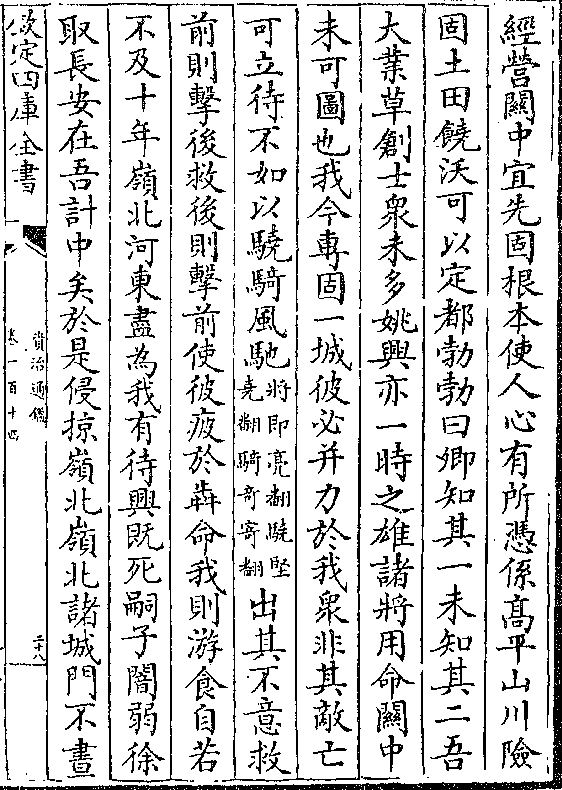 經營關中宜先固根本使人心有所憑係高平山川險
固土田饒沃可以定都勃勃曰卿知其一未知其二吾
大業草創士衆未多姚興亦一時之雄諸將用命關中
未可圖也我今專固一城彼必并力於我衆非其敵亡
可立待不如以驍騎風馳將即亮翻驍堅堯翻騎奇寄翻出其不意救
前則擊後救後則擊前使彼疲於犇命我則游食自若
不及十年嶺北河東盡為我有待興既死嗣子闇弱徐
取長安在吾計中矣於是侵掠嶺北嶺北諸城門不晝
欽定四庫全書
資治通鑑
卷一百十四
二十八